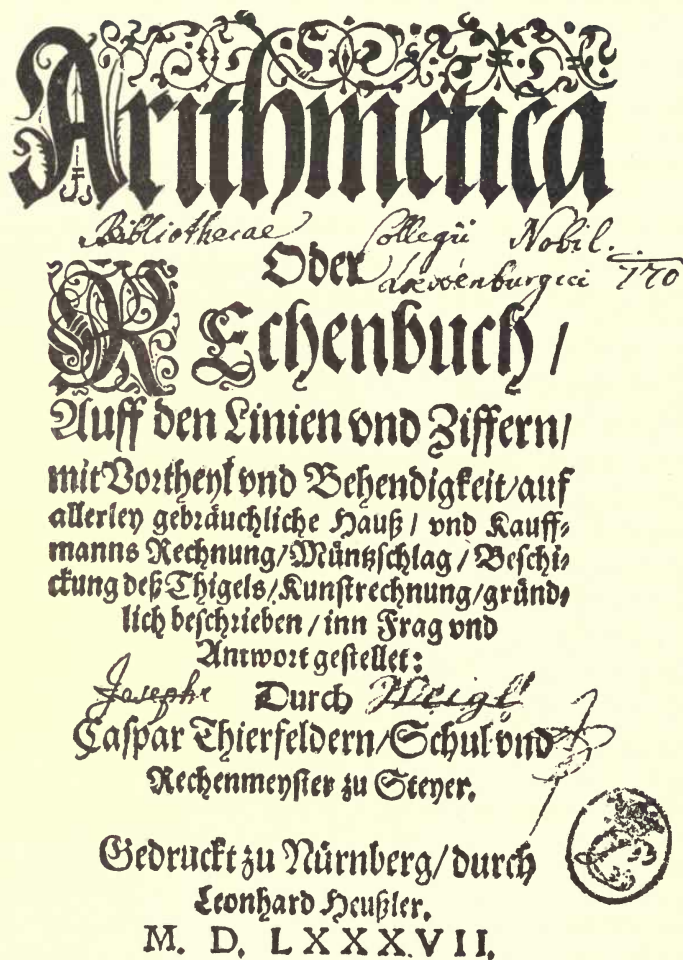 Arithmetica
Bibliothecae Collegii Nobil.
Oder Löwenburgici 170
REchenbuch /
Auff den Linien vnd Ziffern /
mit Vortheyl vnd Behendigkeit / auf
allerley gebräuchliche Hauß / vnd Kauff-
manns Rechnung / Müntzschlag / Beschi-
ckung deß Thigels / Kunstrechnung / gründ-
lich beschrieben / inn Frag vnd
Antwort gestellet:
Josephi Durch Weigl
Caspar Thierfeldern / Schul vnd
Rechenmeyster zu Steyer.
Gedruckt zu Nürnberg / durch
Leonhard Heußler.
M. D. LXXXVII.